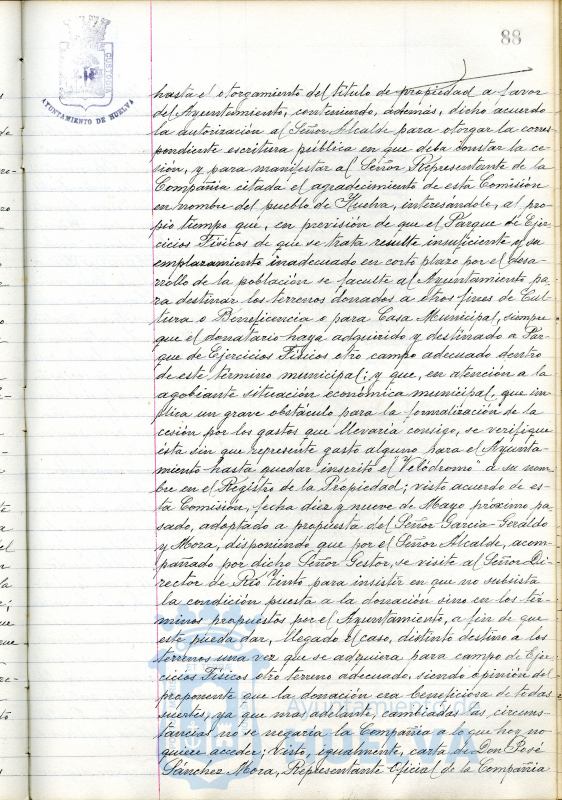 88
AYUNTAMIENTO DE HUELVA
hasta el otorgamiento del título de propiedad a favor
del Ayuntamiento, conteniendo, además, dicho acuerdo
la autorización al Señor Alcalde para otorgar la corres-
pondiente escritura pública en que deba constar la ce-
sión, y para manifestar al Señor Representante de la
Compañía citada el agradecimiento de esta Comisión
en nombre del pueblo de Huelva, interesándole, al pro-
pio tiempo que, en previsión de que el Parque de Ejer-
cicios Físicos de que se trata resulte insuficiente y su
emplazamiento inadecuado en corto plazo por el desa-
rrollo de la población se faculte al Ayuntamiento pa-
ra destinar los terrenos donados a otros fines de Cul-
tura o Beneficencia o para Casa Municipal, siempre
que el donatario haya adquirido y destinado a Par-
que de Ejercicios Físicos otro campo adecuado dentro
de este término municipal; y que, en atención a la
agobiante situación económica municipal, que im-
plica un grave obstáculo para la formalización de la
cesión por los gastos que llevaría consigo, se verifique
ésta sin que represente gasto alguno para el Ayunta-
miento hasta quedar inscrito el "Velódromo" a su nom-
bre en el Registro de la Propiedad; visto acuerdo de es-
ta Comisión, fecha diez y nueve de Mayo próximo pa-
sado, adoptado a propuesta del Señor García-Geraldo
y Mora, disponiendo que por el Señor Alcalde, acom-
pañado por dicho Señor Gestor, se visite al Señor Di-
rector de Río Tinto para insistir en que no subsista
la condición puesta a la donación sino en los tér-
minos propuestos por el Ayuntamiento, a fin de que
este pueda dar, llegado el caso, distinto destino a los
terrenos una vez que se adquiera para campo de Ejer-
cicios Físicos otro terreno adecuado, siendo opinión del
proponente que la donación era beneficiosa de todas
suertes, ya que más adelante, cambiadas las circuns-
tancias no se negaría la Compañía a lo que hoy no
quiere acceder; visto, igualmente, carta de Don José
Sánchez Mora, Representante Oficial de la Compañía
Ayuntamiento de
HUELVA